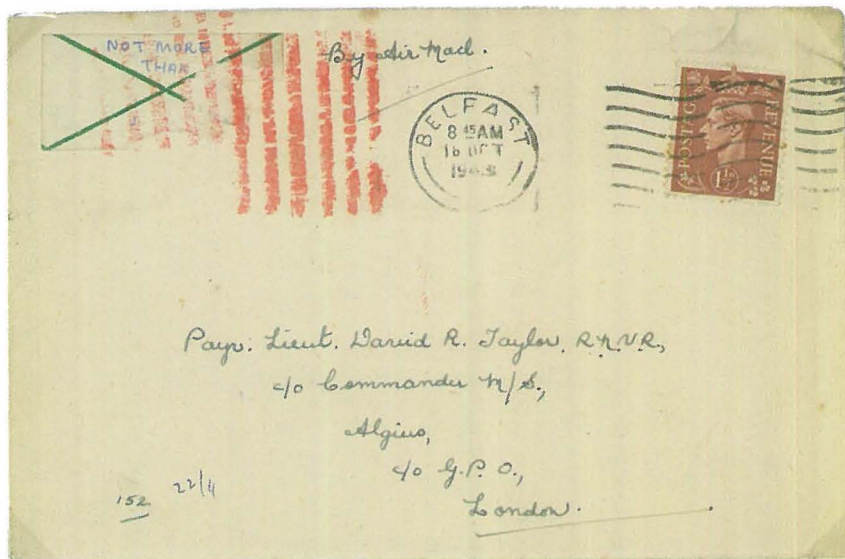 NOT MORE
THAN
By Air Mail.
BELFAST
8 45 AM
16 OCT
1943
POSTAGE REVENUE
1½D
Payr. Lieut. David R. Taylor, R.N.V.R.,
c/o Commander M/S.,
Algiers,
c/o G.P.O.,
London.
152 22/4